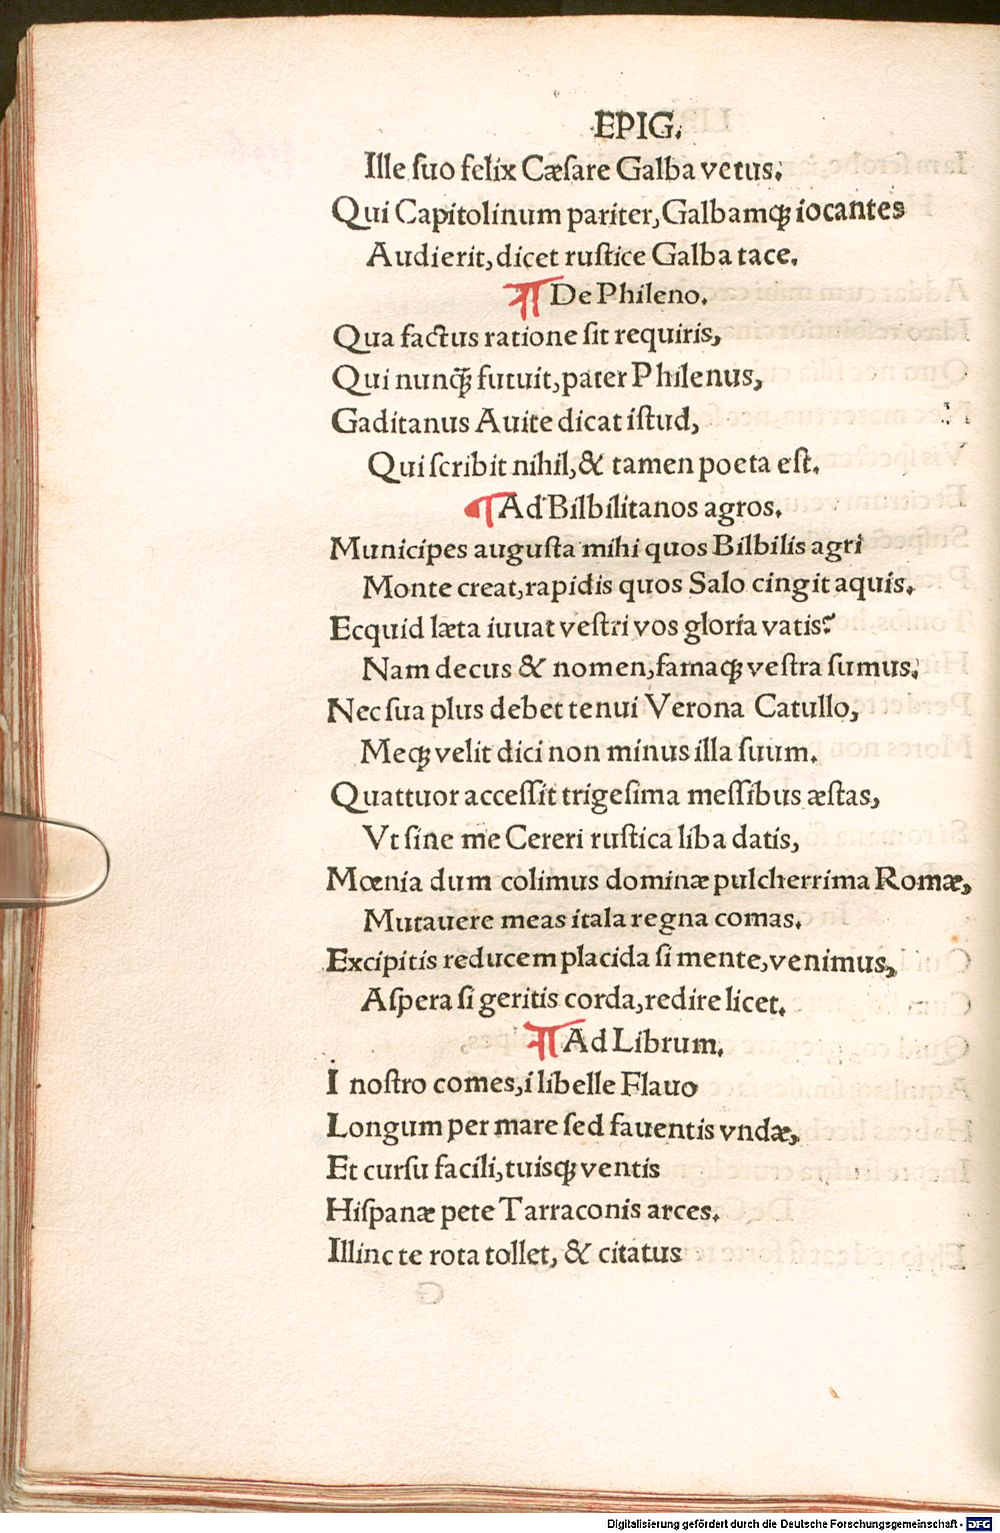 EPIG.
Ille suo felix Cæsare Galba vetus.
Qui Capitolinum pariter, Galbamq; iocantes
Audierit, dicet rustice Galba tace.
¶ De Phileno.
Qua factus ratione sit requiris,
Qui nunq̃ futuit, pater Philenus,
Gaditanus Auite dicat istud,
Qui scribit nihil, & tamen poeta est.
¶ Ad Bilbilitanos agros.
Municipes augusta mihi quos Bilbilis agri
Monte creat, rapidis quos Salo cingit aquis.
Ecquid læta iuuat vestri vos gloria vatis?
Nam decus & nomen, famaq; vestra sumus.
Nec sua plus debet tenui Verona Catullo,
Meq; velit dici non minus illa suum.
Quattuor accessit trigesima messibus æstas,
Vt sine me Cereri rustica liba datis,
Mœnia dum colimus dominæ pulcherrima Romæ,
Mutauere meas itala regna comas.
Excipitis reducem placida si mente, venimus,
Aspera si geritis corda, redire licet.
¶ Ad Librum.
I nostro comes, i libelle Flauo
Longum per mare sed fauentis vndæ,
Et cursu facili, tuisq; ventis
Hispanæ pete Tarraconis arces.
Illinc te rota tollet, & citatus
Digitalisierung gefördert durch die Deutsche Forschungsgemeinschaft - DFG